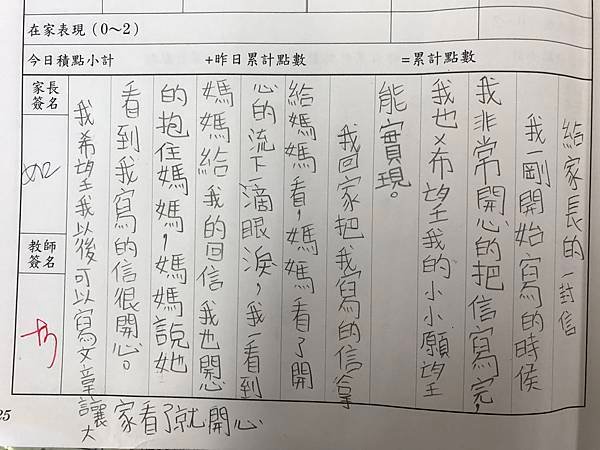 在家表現(0～2)
今日積點小計 +昨日累計點數 =累計點數
家長
簽名
教師
簽名
給家長的一封信
我剛開始寫的時候
我非常開心的把信寫完，
我也×希望我的小小願望
能實現。
我回家把我寫的信拿
給媽媽看，媽媽看了開
心的流下滴眼淚，我看到
媽媽給我的回信我也開心
的抱住媽媽，媽媽說她
看到我寫的信很開心。
我希望我以後可以寫文章讓大
家看了就開心
25